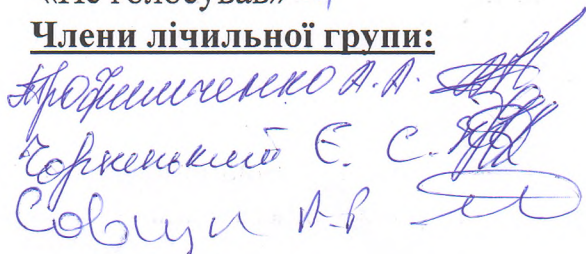 «Не голосував»
Члени лічильної групи:
Трофименко А. А.
Чорненький Є. С.
Совщи А. В